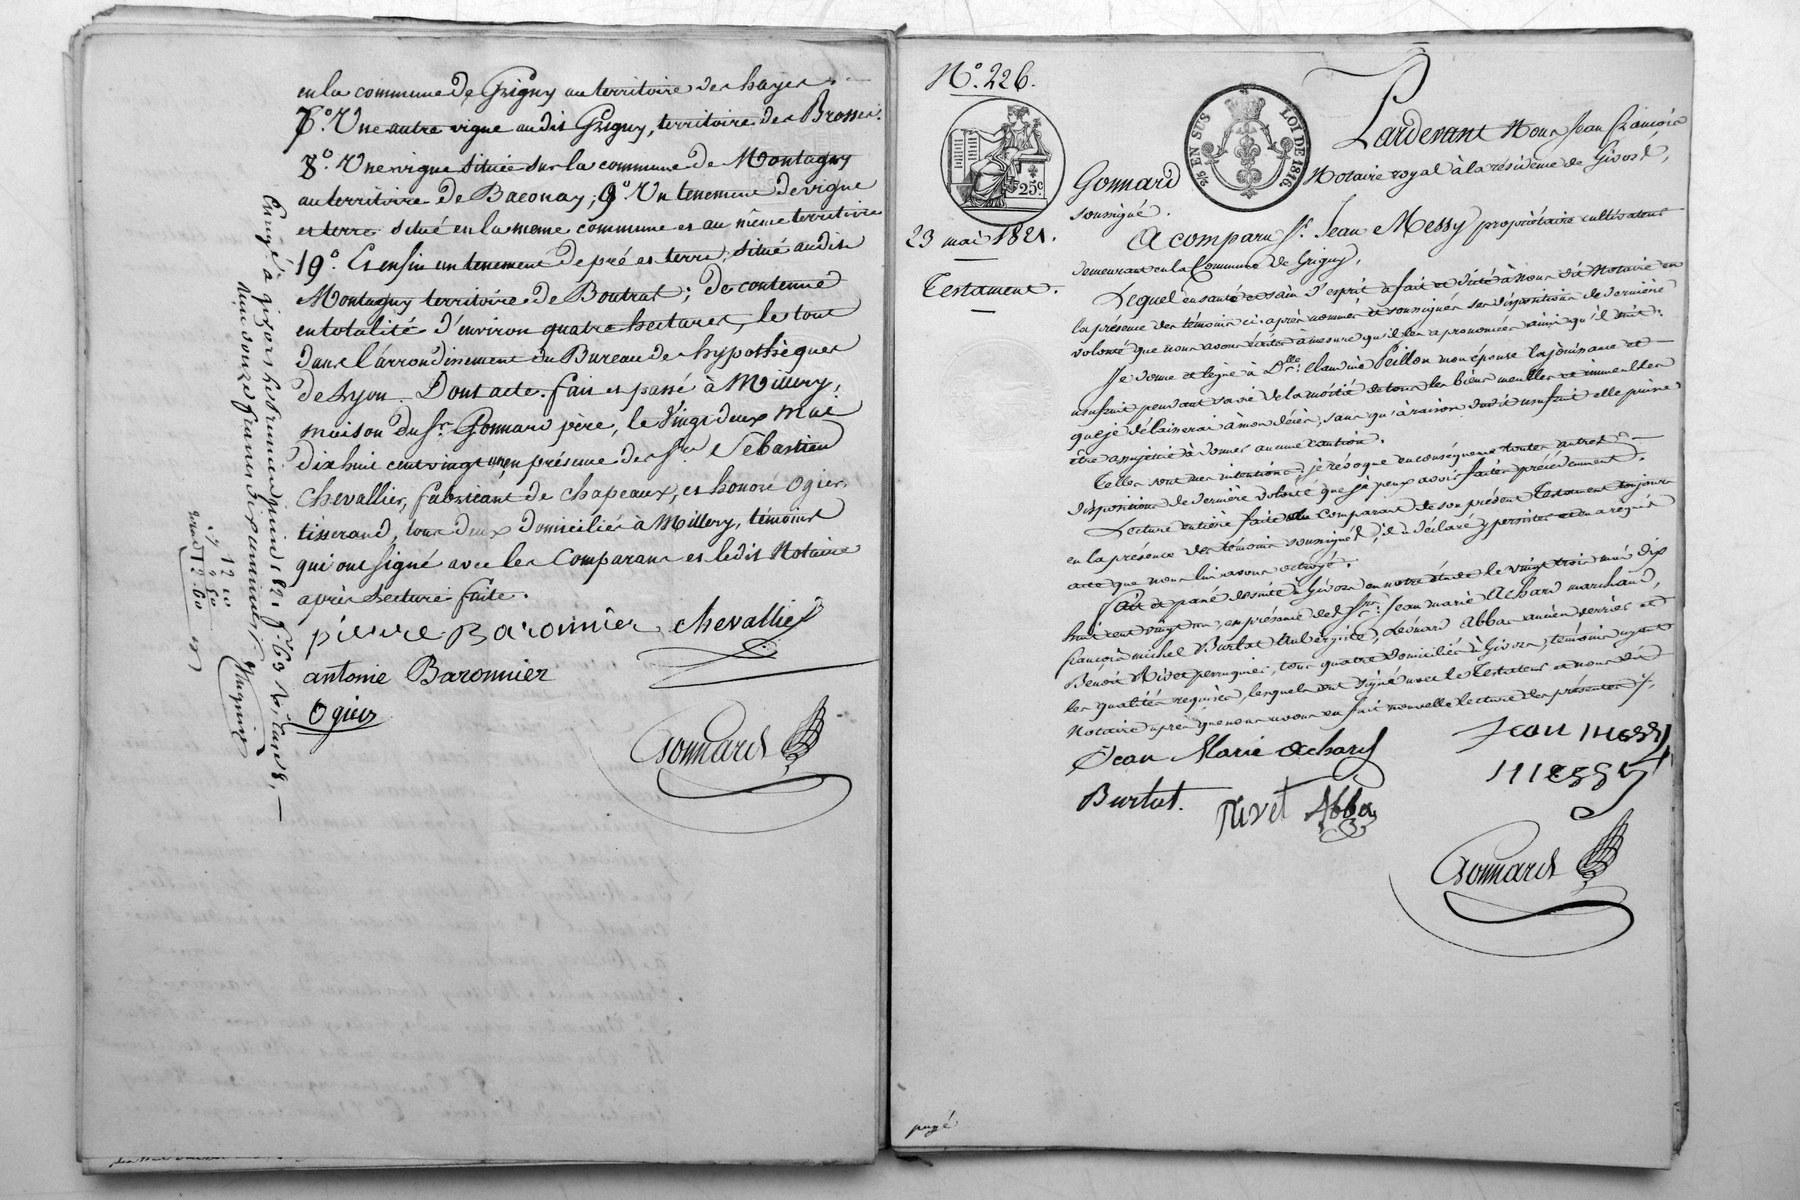 en la commune de Grigny au territoire des hayes.
7.° Une autre vigne audit Grigny, territoire des Brosses.
8.° Une vigne située sur la commune de Montagny
au territoire de Baconay; 9.° Un tenement de vigne
et terre situé en la meme commune et au même territoire
10.° Et enfin un tenement de pré et terre, situé audit
Montagny territoire de Boutrat; de contenue
en totalité d'environ quatre hectares, le tout
dans l'arrondissement du Bureau des hypothèques
de Lyon. Dont acte. fait et passé à Millery,
maison du Sr. Gonnard père, le Vingt deux Mai
dix huit cent vingt un, en présence de Srs Sebastien
Chevallier, fabricant de chapeaux, et honoré Ogier
tisserand, tous deux domiciliés à Millery, témoins
qui ont signé avec les Comparans et ledit Notaire
après Lecture faite.
pierre Baronnier chevallier
antonie Baronnier
Ogier
Gonnard
Enregé à givors le premier juin 1821 f.° 63
Reçu douze francs soixante centimes
12
12.60
N.° 226.
25c
5/6 EN SUS
LOI DE 1816
23 mai 1821.
Testament.
Pardevant Nous Jean François
Gonnard Notaire royal à la résidence de Givors,
soussigné.
A comparu Sr. Jean Messy propriétaire cultivateur
demeurant en la Commune de Grigny,
Lequel en santé et sain d'esprit a fait et dicté à nous dit Notaire en
la présence des témoins ci-après nommés et soussignés ses dispositions de dernière
volonté que nous avons écrites à mesure qu'il les a prononcées ainsi qu'il suit.
Je donne et legue à Dlle. Claudine Peillon mon épouse la jouissance et
usufruit pendant sa vie de la moitié de tous les biens meubles et immeubles
que je délaisserai à mon décès, sans qu'à raison dudit usufruit elle puisse
être assujettie à donner aucune caution.
Telles sont mes intentions, je révoque en conséquence toutes autres
dispositions de dernière volonté que je peux avoir faites précédemment.
Lecture entière faite au Comparant de son présent Testament toujours
en la présence des témoins soussignés, il a déclaré y persister et en a requis
acte que nous lui avons octroyé.
Fait et passé à Givors en notre étude le vingt trois mai dix
huit cent vingt un, en présence de Srs. Jean marie Achard marchand,
françois michel Burtat Aubergiste, Leonard Abba ancien verrier et
Benoit Rivet perruquier, tous quatre domiciliés à Givors, témoins ayant
les qualités requises, lesquels ont signé avec le Testateur et nous dit
Notaire après que nous avons eu fait nouvelle lecture des présentes.
Jean Marie Achard Jean messy
messy
Burtat. Rivet Abba
Gonnard
payé